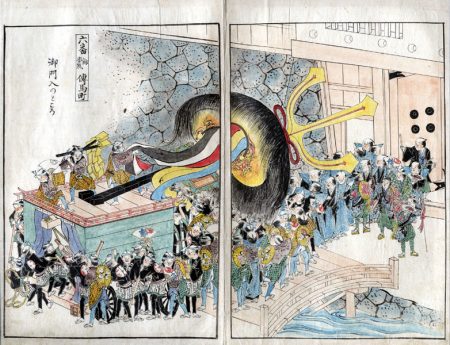 六番 傳馬町
御門入のところ